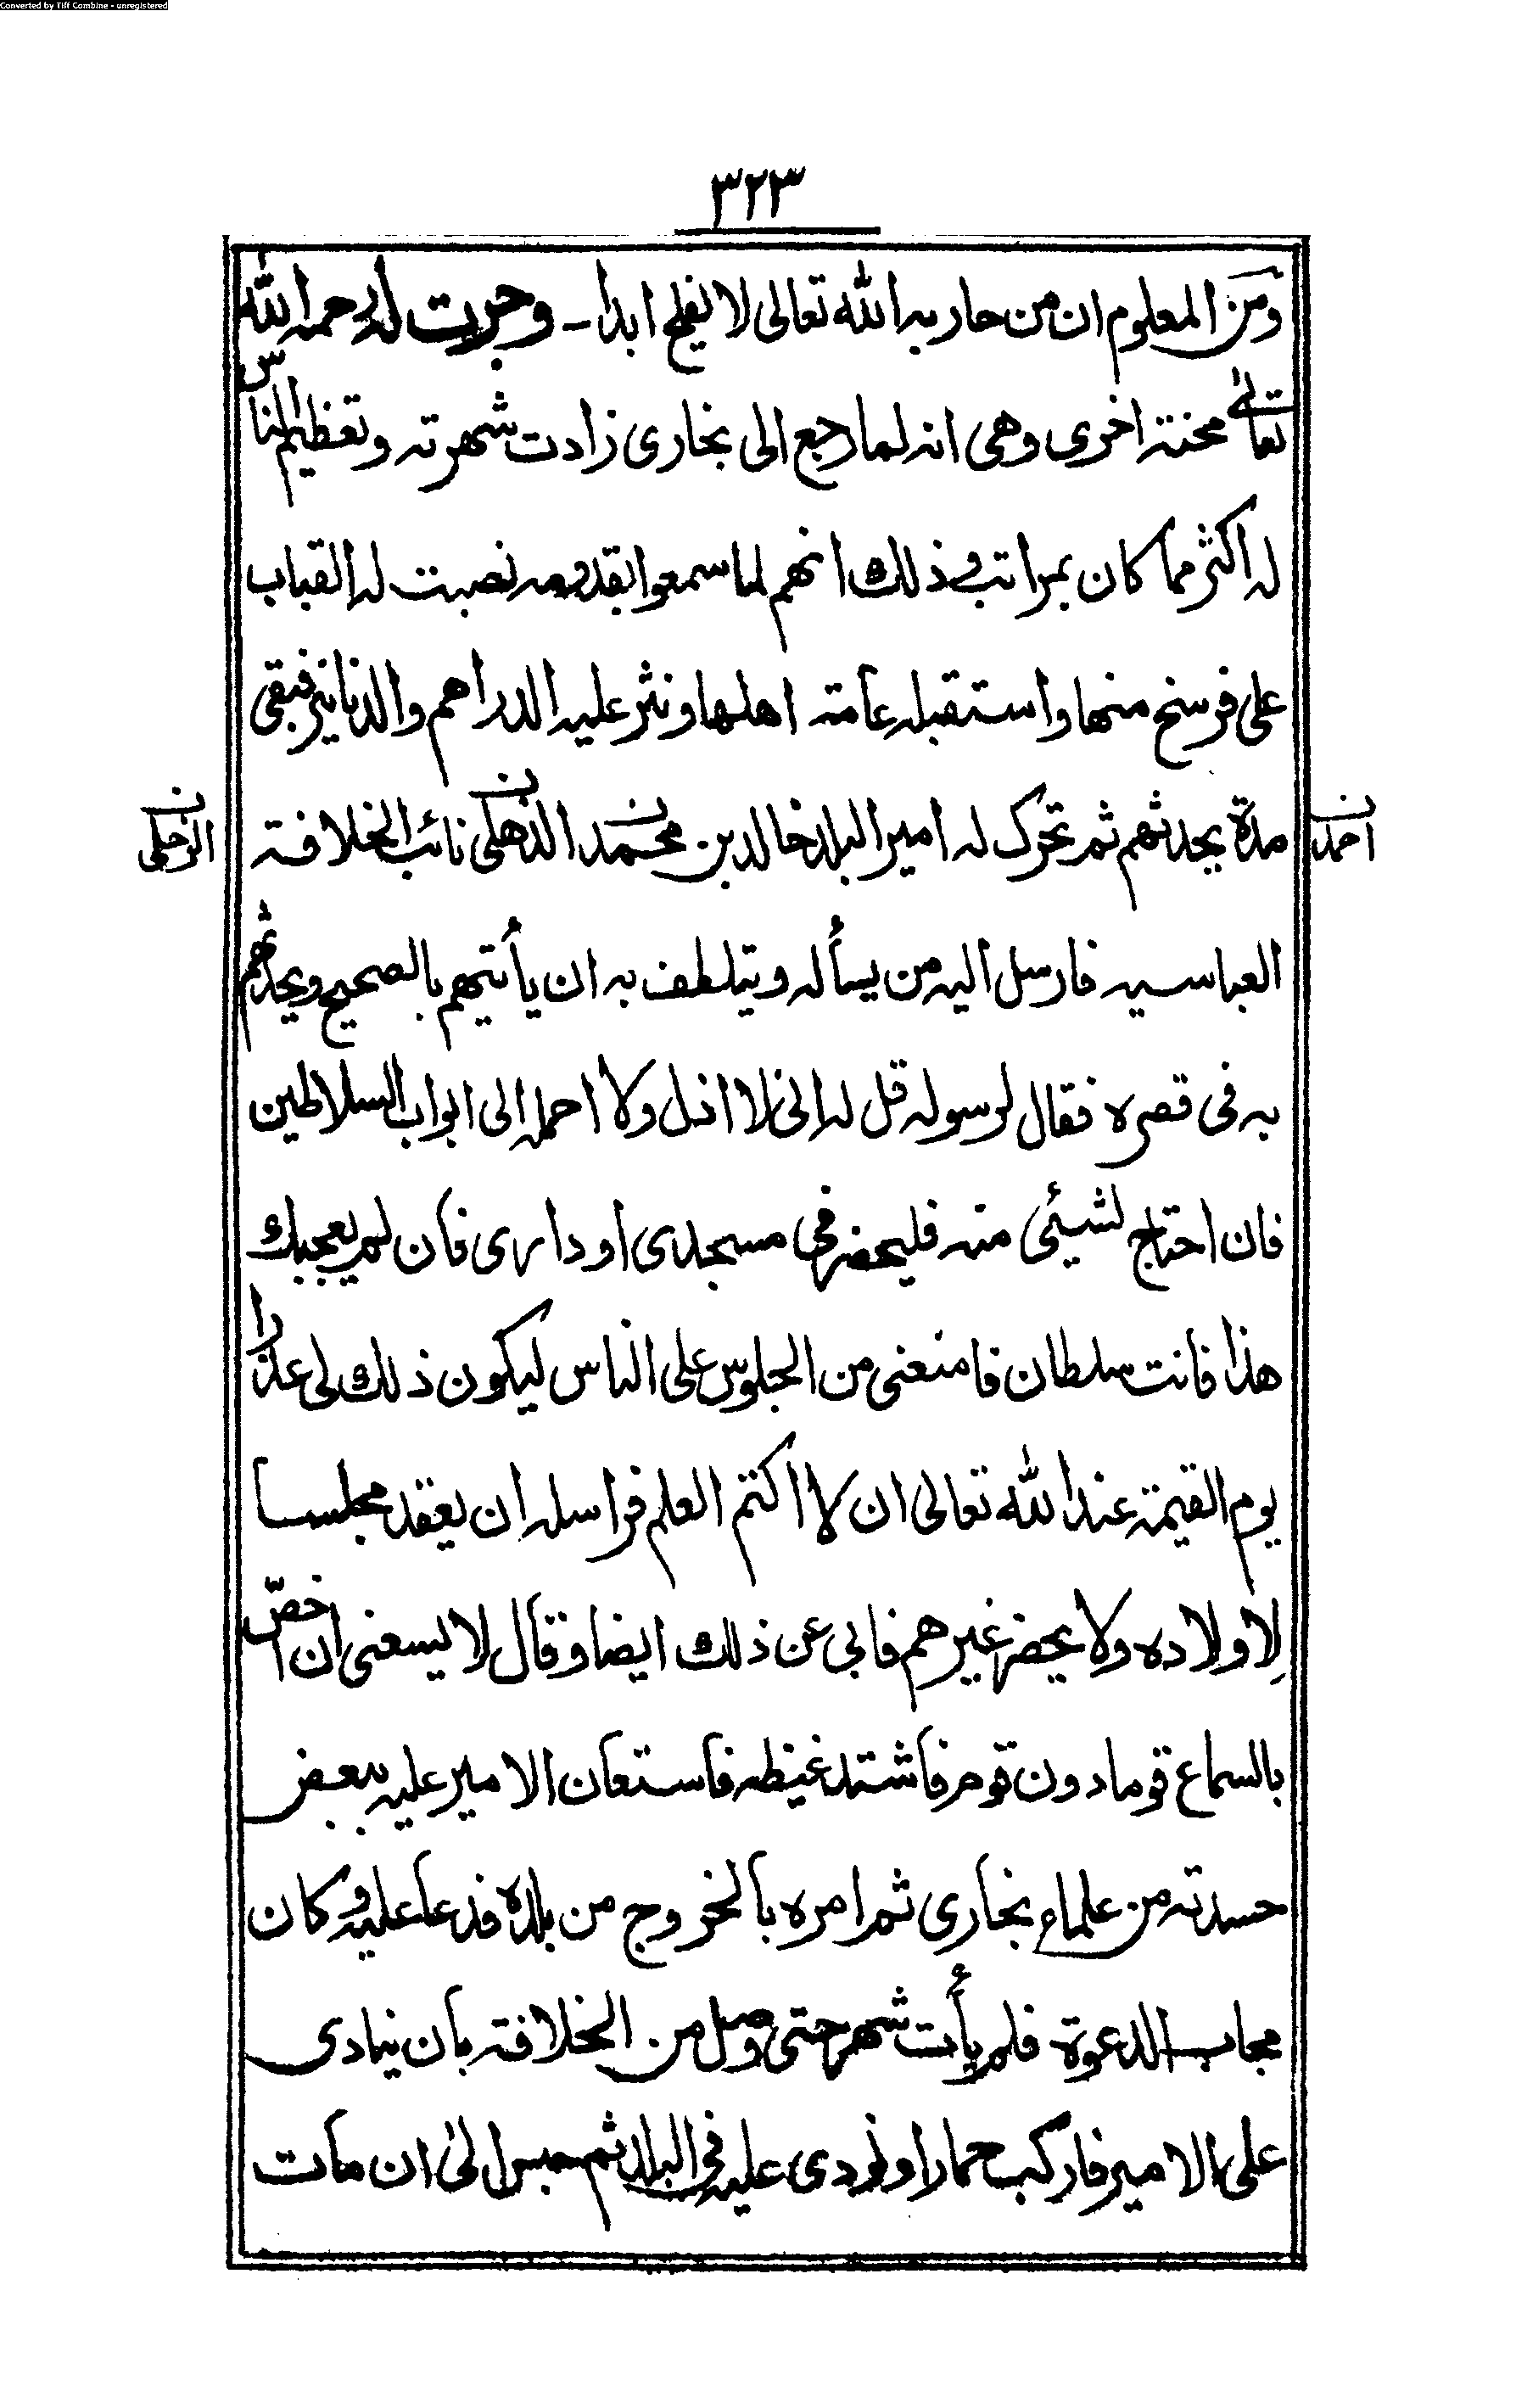 Converted by Tiff Combine - unregistered
٣٢٣
ومن المعلوم ان من حاربه الله تعالى لا يفلح ابدا - وجرت له رحمه الله
تعالى محنته اخرى وهي انه لما رجع الى بخارى زادت شهرته وتعظيم الناس
له اكثر مما كان بمراتب وذلك انهم لما سمعوا بقدومه نصبت له القباب
على فرسخ منها واستقبله عامته اهلها ونثر عليه الدراهم والدنانير فبقي
مدة يحدثهم ثم تحرك له امير البلد خالد بن محمد الذهلى نائب الخلافته
احمد ن
الزحكى ن
العباسيه فارسل اليه من يسأله ويتلطف به ان يأتيهم بالصحيح ويحدثهم
به في قصره فقال لرسوله قل له انى لا اذل ولا احمله الى ابواب السلاطين
فان احتاج لشيئى منه فليحضر في مسجدى او دارى فان لم يعجبك
هذا فانت سلطان فامنعنى من الجلوس على الناس ليكون ذلك لى عذرا
يوم القيمة عند الله تعالى ان لا اكتم العلم فراسله ان يعقد مجلسا
لاولاده ولا يحضر غيرهم فابى عن ذلك ايضا وقال لا يسعنى ان اخصّ
بالسماع قوما دون قوم فاشتد غيظه فاستعان الامير عليه ببعض
حسدته من علماء بخارى ثم امره بالخروج من بلده فدعا عليه وكان
مجاب الدعوة فلم يأت شهر حتى وصل من الخلافته بان ينادى
على الامير فاركب حمارا ونودى عليه في البلد ثم حبس الى ان مات